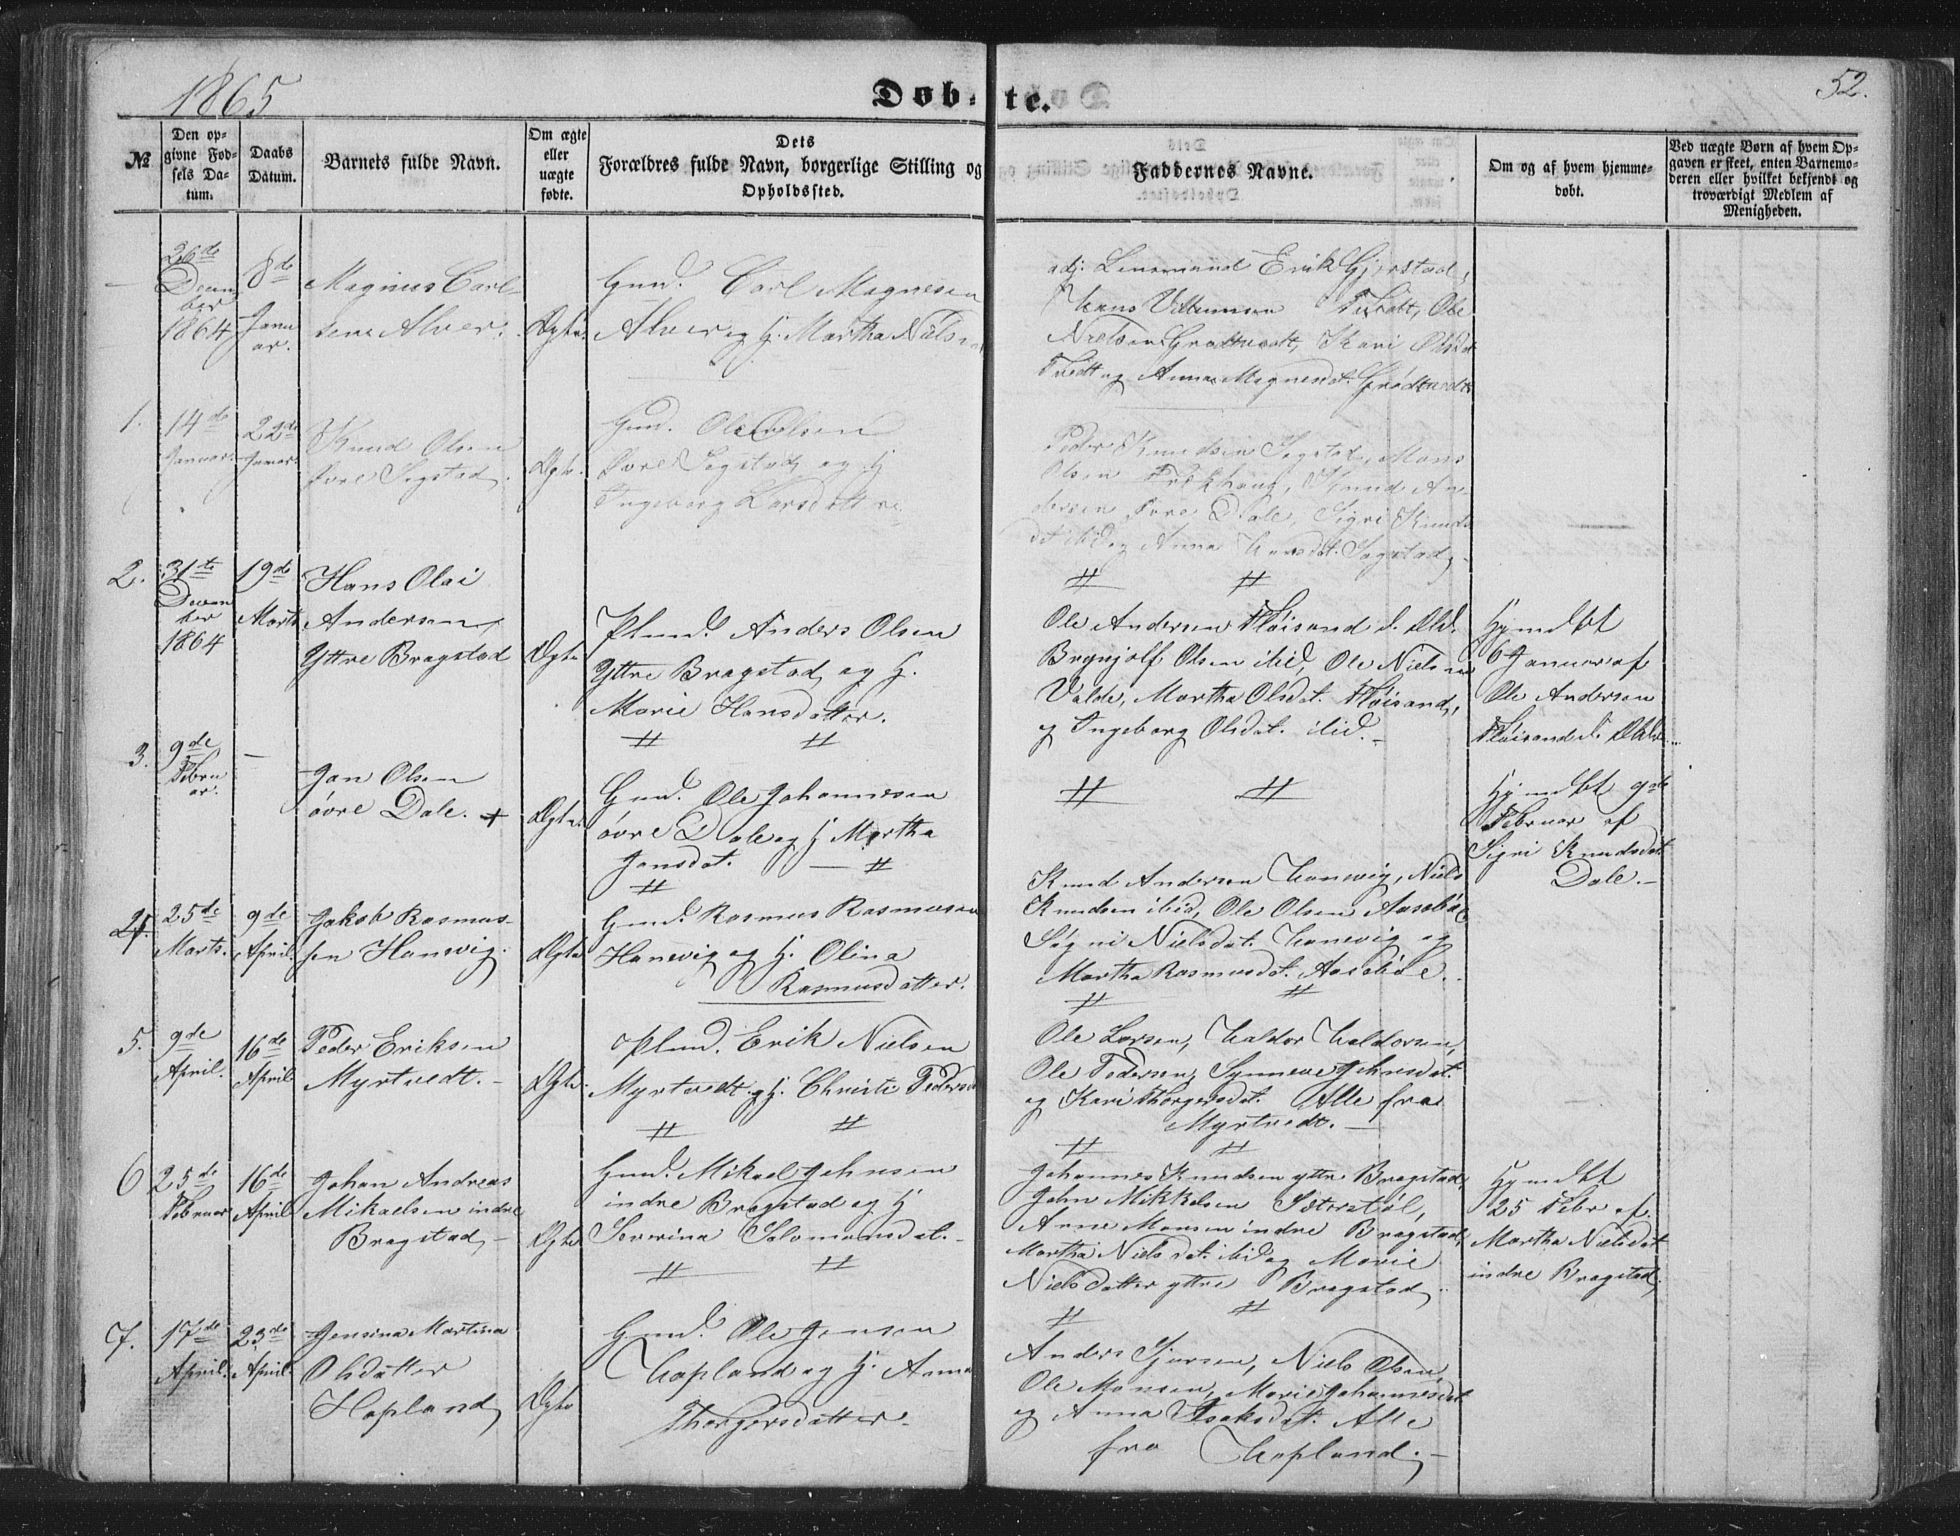 1865
Døbte.
52.
№
Den opgivne Fødsels Datum.
Daabs Datum.
Barnets fulde Navn.
Om ægte eller uægte fødte.
Dets Forældres fulde Navn, borgerlige Stilling og Opholdssted.
Faddernes Navne.
Om og af hvem hjemmedøbt.
Ved uægte Børn af hvem Opgaven er skeet, enten Barnemoderen eller hvilket bekjendt og troværdigt Medlem af Menigheden.
26de
Decem
ber
1864
8de
Janu
ar.
Magnus Carl-
sen Alver.
Ægte.
Gmd. Carl Magnesen
Alver og H. Martha Niels
adj. Lensmand Erik Gjerstad,
Tvedt, Ole
Nielsen Grødtvedt, Kari Olsd
Tvedt og Anna Magnesdt. Grødtvedt
1.
14de
Januar.
22de
Januar.
Knud Olsen
øvre Sogstad.
Ægte.
Gmd. Ole Olsen
øvre Sogstad og H
Ingeborg Larsdatter
Peder Knudsen Sogstad, Mons
Olsen Knud An-
dersen øvre Dale, Sigri Knuds
dt ibid og Anna Hansdt. Sogstad
2.
31te
Decem
ber
1864
19de
Marts
Hans Olai
Andersen
Yttre Bragstad
Ægte
Plmd. Anders Olsen
Yttre Bragstad og H.
Marie Hansdatter.
Ole Andersen Fløisand
Brynjolf Olsen ibid, Ole Nielsen
Valde, Martha Olsdt. Fløisand,
og Ingeborg Olsdt. ibid.
Hjmdbt
6 Januar af
Ole Andersen
Fløisand
3.
9de
Febru
ar.
—
Jan Olsen
øvre Dale. +
Ægte.
Gmd. Ole Johannesen
øvre Dale og H Martha
Jansdt.
Hjmdbt 9de
Februar af
Sigri Knudsdt
Dale.
4.
25de
Marts.
9de
April
Jakob Rasmus-
sen Hanevig.
Ægte
Gmd. Rasmus Rasmusen
Hanevig og H. Olina
Rasmusdatter.
Knud Andersen Hanevig, Niels
Knudsen ibid, Ole Olsen Aasebøe
Søgni Nielsdt. Hanevig og
Martha Rasmusdt. Aasebøe.
5.
9de
April.
16de
April
Peder Eriksen
Myrtvedt.
Ægte.
Plmd. Erik Nielsen
Myrtvedt og H. Christi Pedersd
Ole Larsen, Haldor Haldorsen,
Ole Pedersen, Synneve Johnsdt.
og Kari Thorgersdt. Alle fra
Myrtvedt.
6
25de
Februar
16de
April
Johan Andreas
Mikaelsen indre
Bragstad
Ægte
Gmd. Mikael Johnsen
indre Bragstad og H
Severina Salomonsdt.
Johannes Knudsen yttre Bragstad,
John Mikkelsen Sæterstøl,
Arne Monsen indre Bragstad,
Martha Nielsdt. ibid og Marie
Nielsdatter yttre Bragstad.
Hjmdbt
25 Febr af.
Martha Nielsdt
indre Bragstad.
7.
17de
April.
23de
April.
Jensina Martina
Olsdatter
Hopland
Ægte
Gmd. Ole Jensen
Hopland og H. Anna
Thorgersdatter.
Anders Sjursen, Niels Olsen,
Ole Monsen, Marie Johannesdt
og Anna Isaksdt. Alle
fra Hopland.